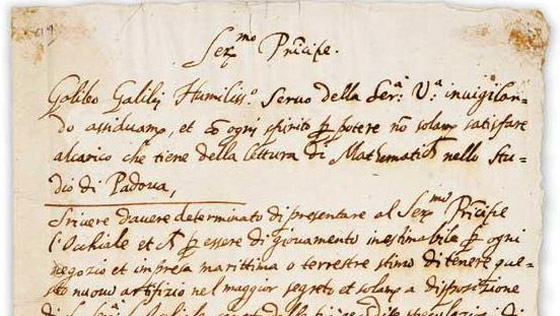 Ser.mo Prĩcipe.
Galileo Galilej Humiliss.o Servo della Ser.a V.a invigilan-
do assiduamẽ, et cõ ogni spirito ꝑ potere nõ solamẽ satisfare
alcarico che tiene della lettura di Mathematicħ nello Stu-
dio di Padova,
Scrivere davere determinato di presentare al Ser.mo Prĩcipe
l'Occhiale et ꝑ essere di giovamento inestimabile ꝑ ogni
negozio et impresa marittima o terrestre stimo di tenere que-
sto nuovo artifizio nel maggior segreto et solamẽ a disposizione
di